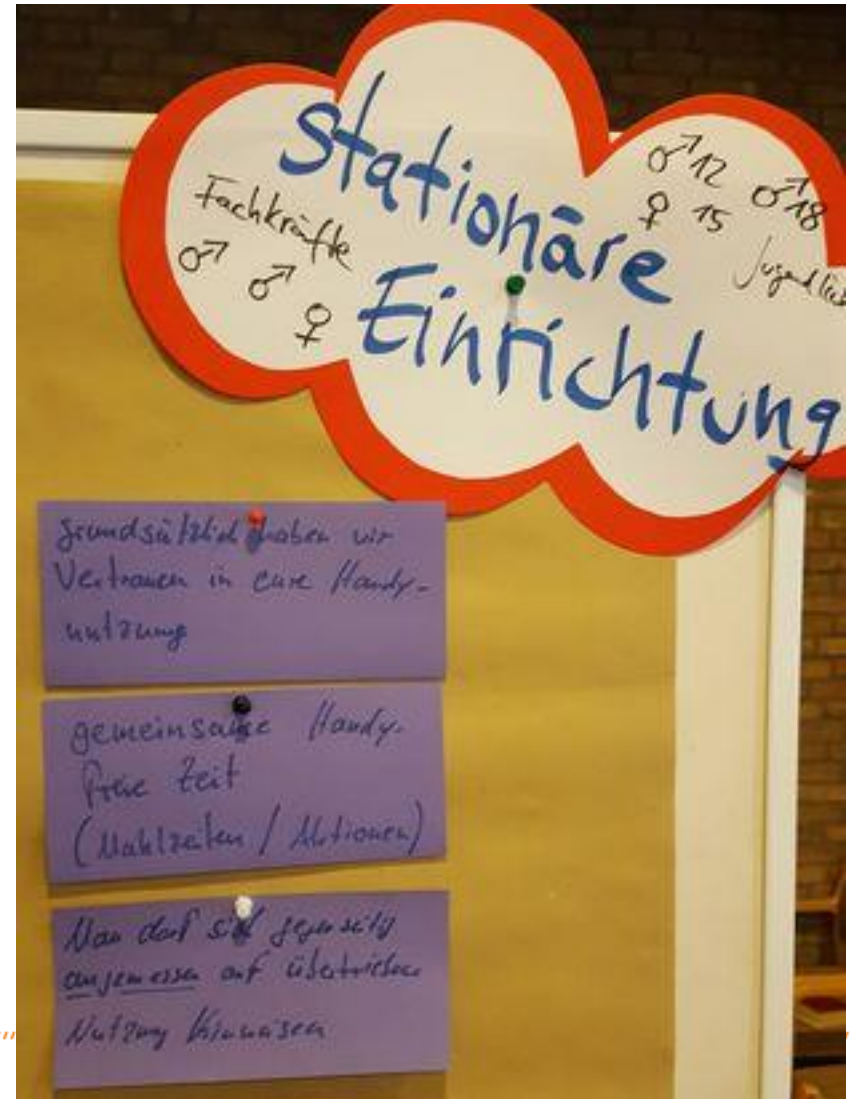 Stationäre
Einrichtung
Fachkräfte
♂ ♂ ♀
♂ 12 ♂ 18
♀ 15
Jugendlich
grundsätzlich haben wir
Vertrauen in eure Handy-
nutzung
gemeinsame Handy-
freie Zeit
(Mahlzeiten / Aktionen)
Man darf sich gegenseitig
angemessen auf übertriebene
Nutzung hinweisen